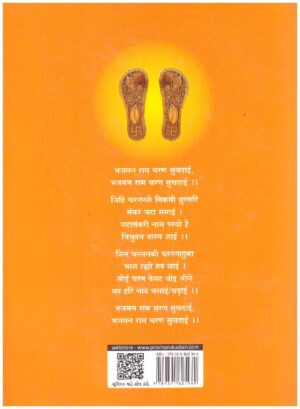 भजमन राम चरण सुखदाई,
भजमन राम चरण सुखदाई ।।
जिहि चरननसे निकसी सुरसरि
संकर जटा समाई ।
जटासंकरी नाम परयो है
त्रिभुवन तारन आई ।।
जिन चरननकी चरनपादुका
भरत रह्यो लव लाई ।
सोई चरन केवट धोइ लीने
तब हरि नाव चलाई/चढ़ाई ।।
भजमन राम चरण सुखदाई,
भजमन राम चरण सुखदाई ।।
webstore - www.pravinprakashan.com